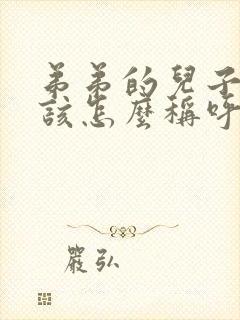 弟弟的兒子
該怎麼稱呼
嚴弘